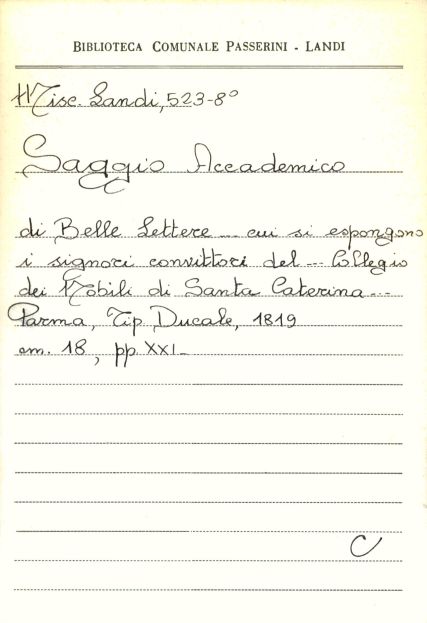 BIBLIOTECA COMUNALE PASSERINI - LANDI
Misc. Landi, 523-8°
Saggio Accademico
di Belle Lettere ... cui si espongono
i signori convittori del ... Collegio
dei Nobili di Santa Caterina ...
Parma, Tip. Ducale, 1819
cm. 18, pp. XXI
C